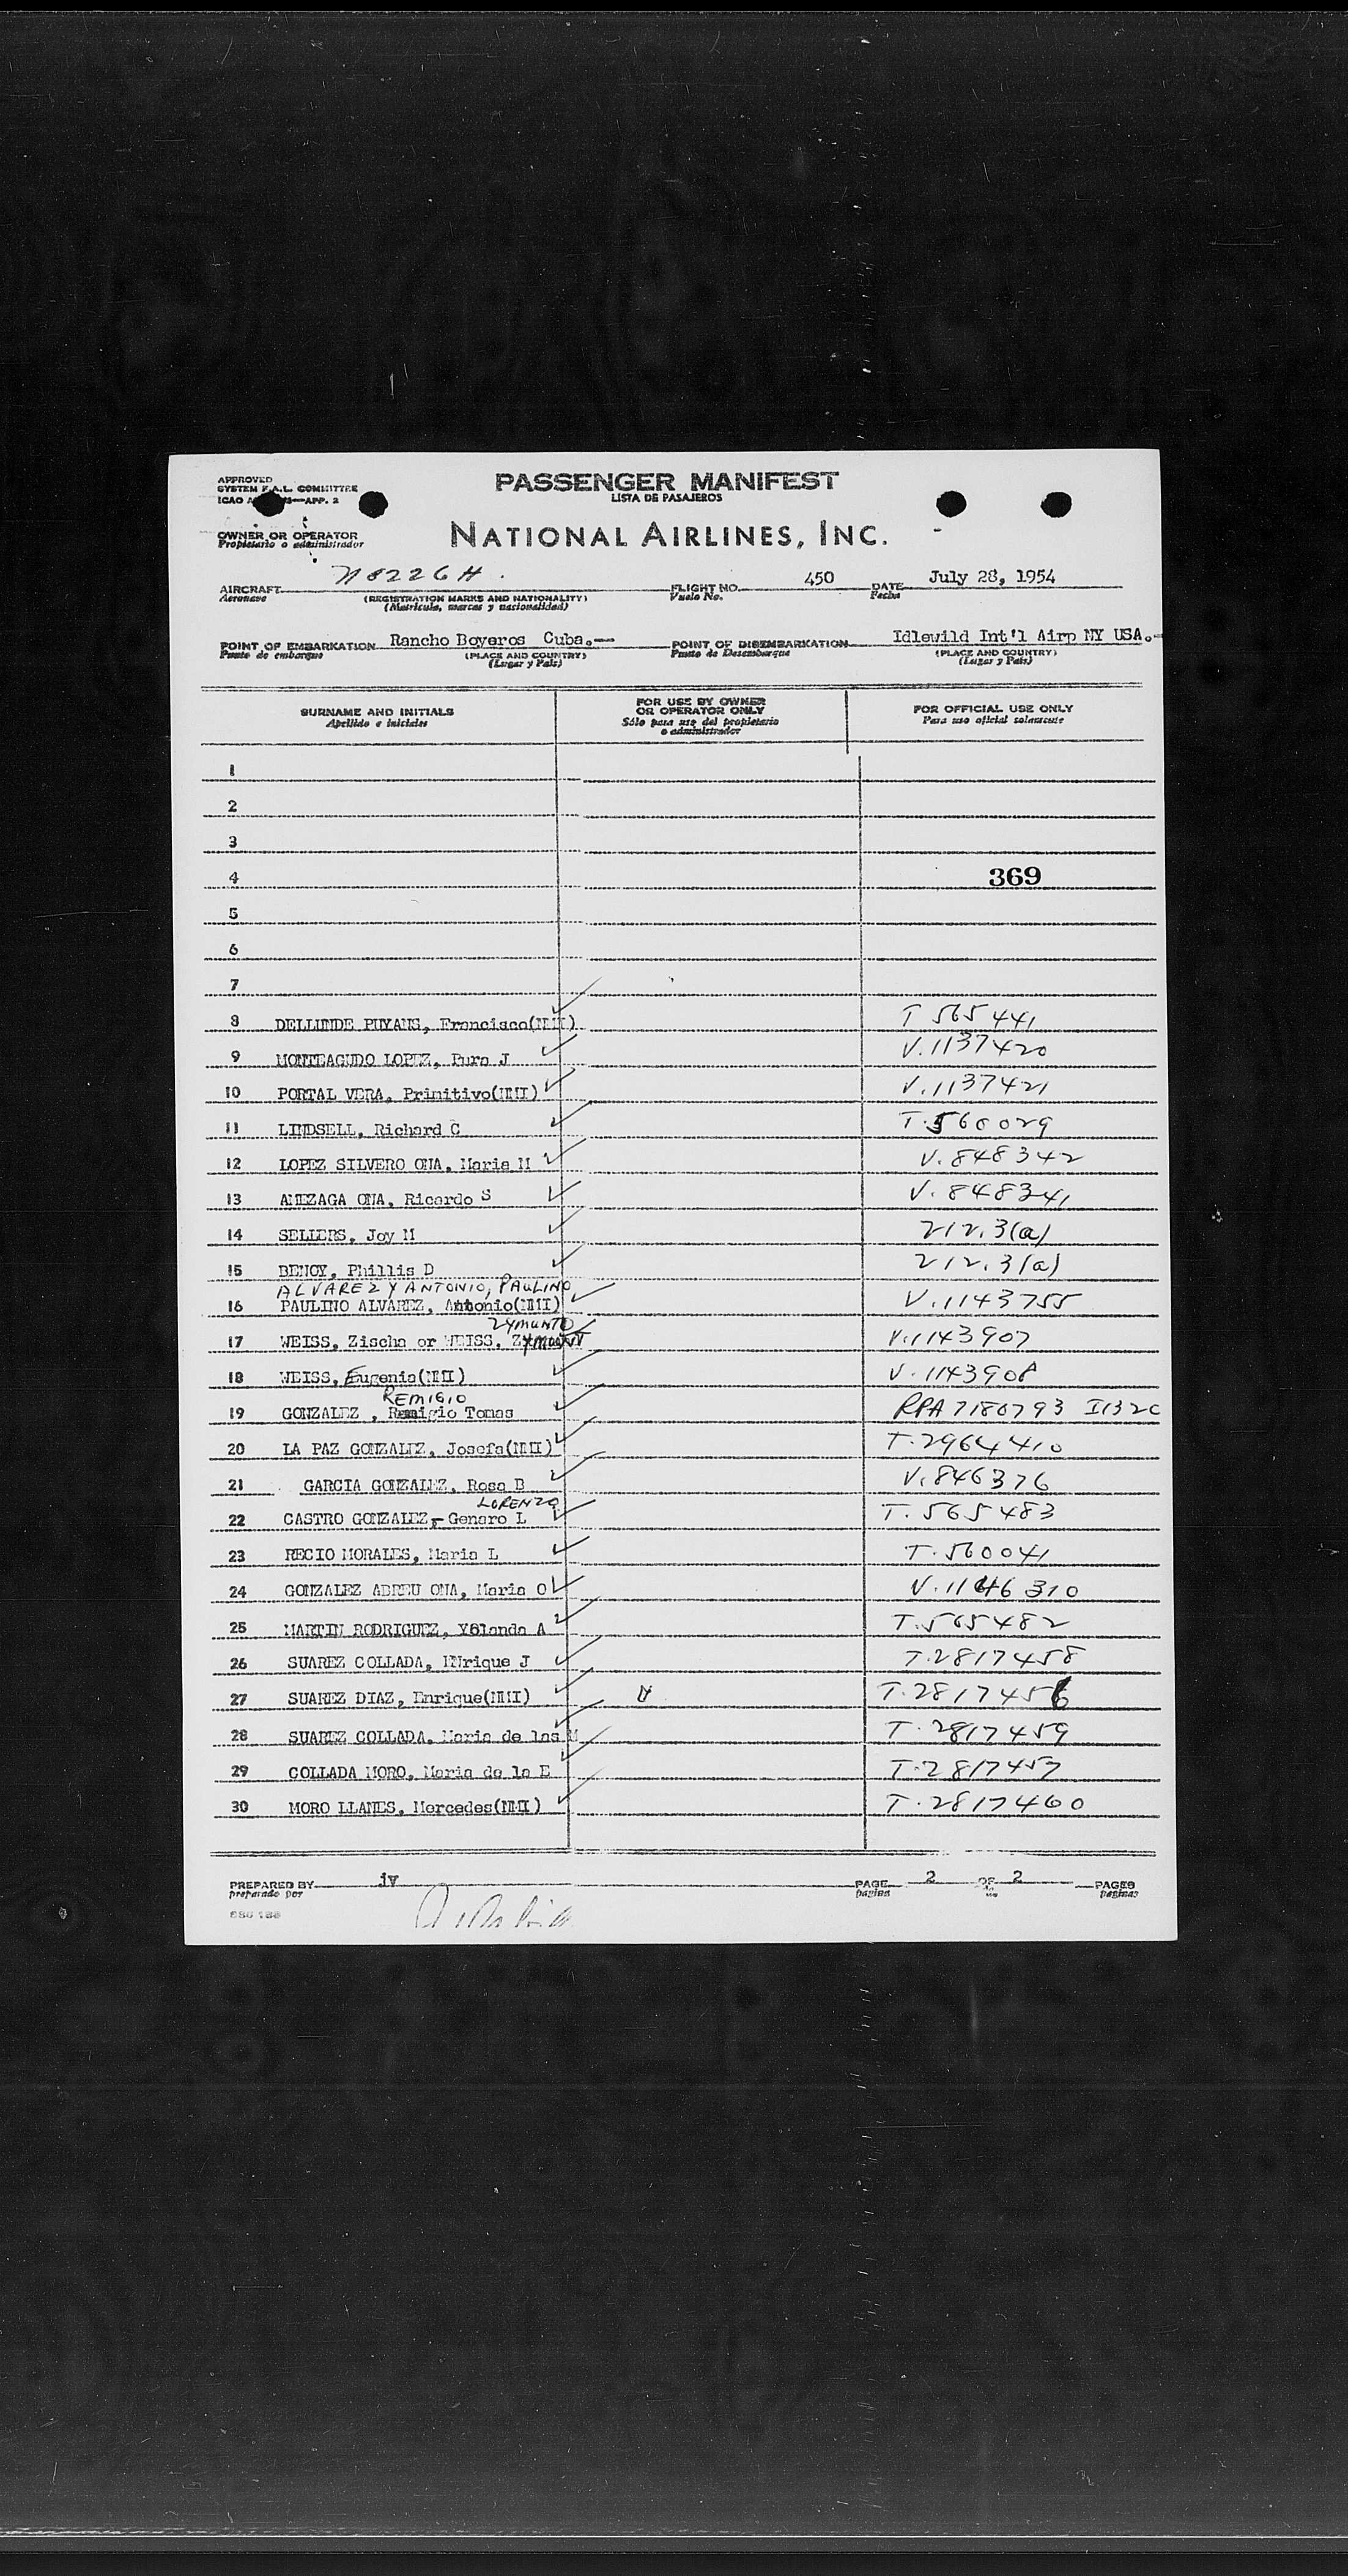 APPROVED
SYSTEM F.A.L. COMMITTEE
ICAO APP. 2
PASSENGER MANIFEST
LISTA DE PASAJEROS
OWNER OR OPERATOR
Propietario o administrador
NATIONAL AIRLINES, INC.
AIRCRAFT N8226H. FLIGHT NO. 450 DATE July 28, 1954
Aeronave (REGISTRATION MARKS AND NATIONALITY) Vuelo No. Fecha
(Matricula, marcas y nacionalidad)
POINT OF EMBARKATION Rancho Boyeros Cuba.— POINT OF DISEMBARKATION Idlewild Int'l Airp NY USA.-
Punto de embarque (PLACE AND COUNTRY) Punto de Desembarque (PLACE AND COUNTRY)
(Lugar y Pais) (Lugar y Pais)
SURNAME AND INITIALS FOR USE BY OWNER OR OPERATOR ONLY FOR OFFICIAL USE ONLY
Apellido e iniciales Sólo para uso del propietario o administrador Para uso oficial solamente
1
2
3
4 369
5
6
7
8 DELLUNDE PUYANS, Francisco(NMI) T 565441
9 MONTEAGUDO LOPEZ, Pura J V.1137420
10 PORTAL VERA, Primitivo(NMI) V.1137421
11 LINDSELL, Richard C T.560029
12 LOPEZ SILVERO ONA, Maria M V.848342
13 AMEZAGA ONA, Ricardo S V.848341
14 SELLERS, Joy M 212.3(a)
15 BENOY, Phillis D 212.3(a)
ALVAREZ Y ANTONIO, PAULINO
16 PAULINO ALVAREZ, Antonio(NMI) V.1143755
ZYMUNTO
17 WEISS, Zischa or WEISS, V.1143907
18 WEISS, Eugenia(NMI) V.1143908
REMIGIO
19 GONZALEZ , Remigio Tomas RPA 7180793 I132C
20 LA PAZ GONZALEZ, Josefa(NMI) T.2964410
21 GARCIA GONZALEZ, Rosa B V.846376
LORENZO
22 CASTRO GONZALEZ, Genaro L T.565483
23 RECIO MORALES, Maria L T.560041
24 GONZALEZ ABREU ONA, Maria O V.1146310
25 MARTIN RODRIGUEZ, YOlanda A T.565482
26 SUAREZ COLLADA, ENrique J T.2817458
27 SUAREZ DIAZ, Enrique(NMI) T.2817456
28 SUAREZ COLLADA, Maria de las M T.2817459
29 COLLADA MORO, Maria de la E T.2817457
30 MORO LLANES, Mercedes(NMI) T.2817460
PREPARED BY jv PAGE 2 OF 2 PAGES
preparado por pagina de paginas